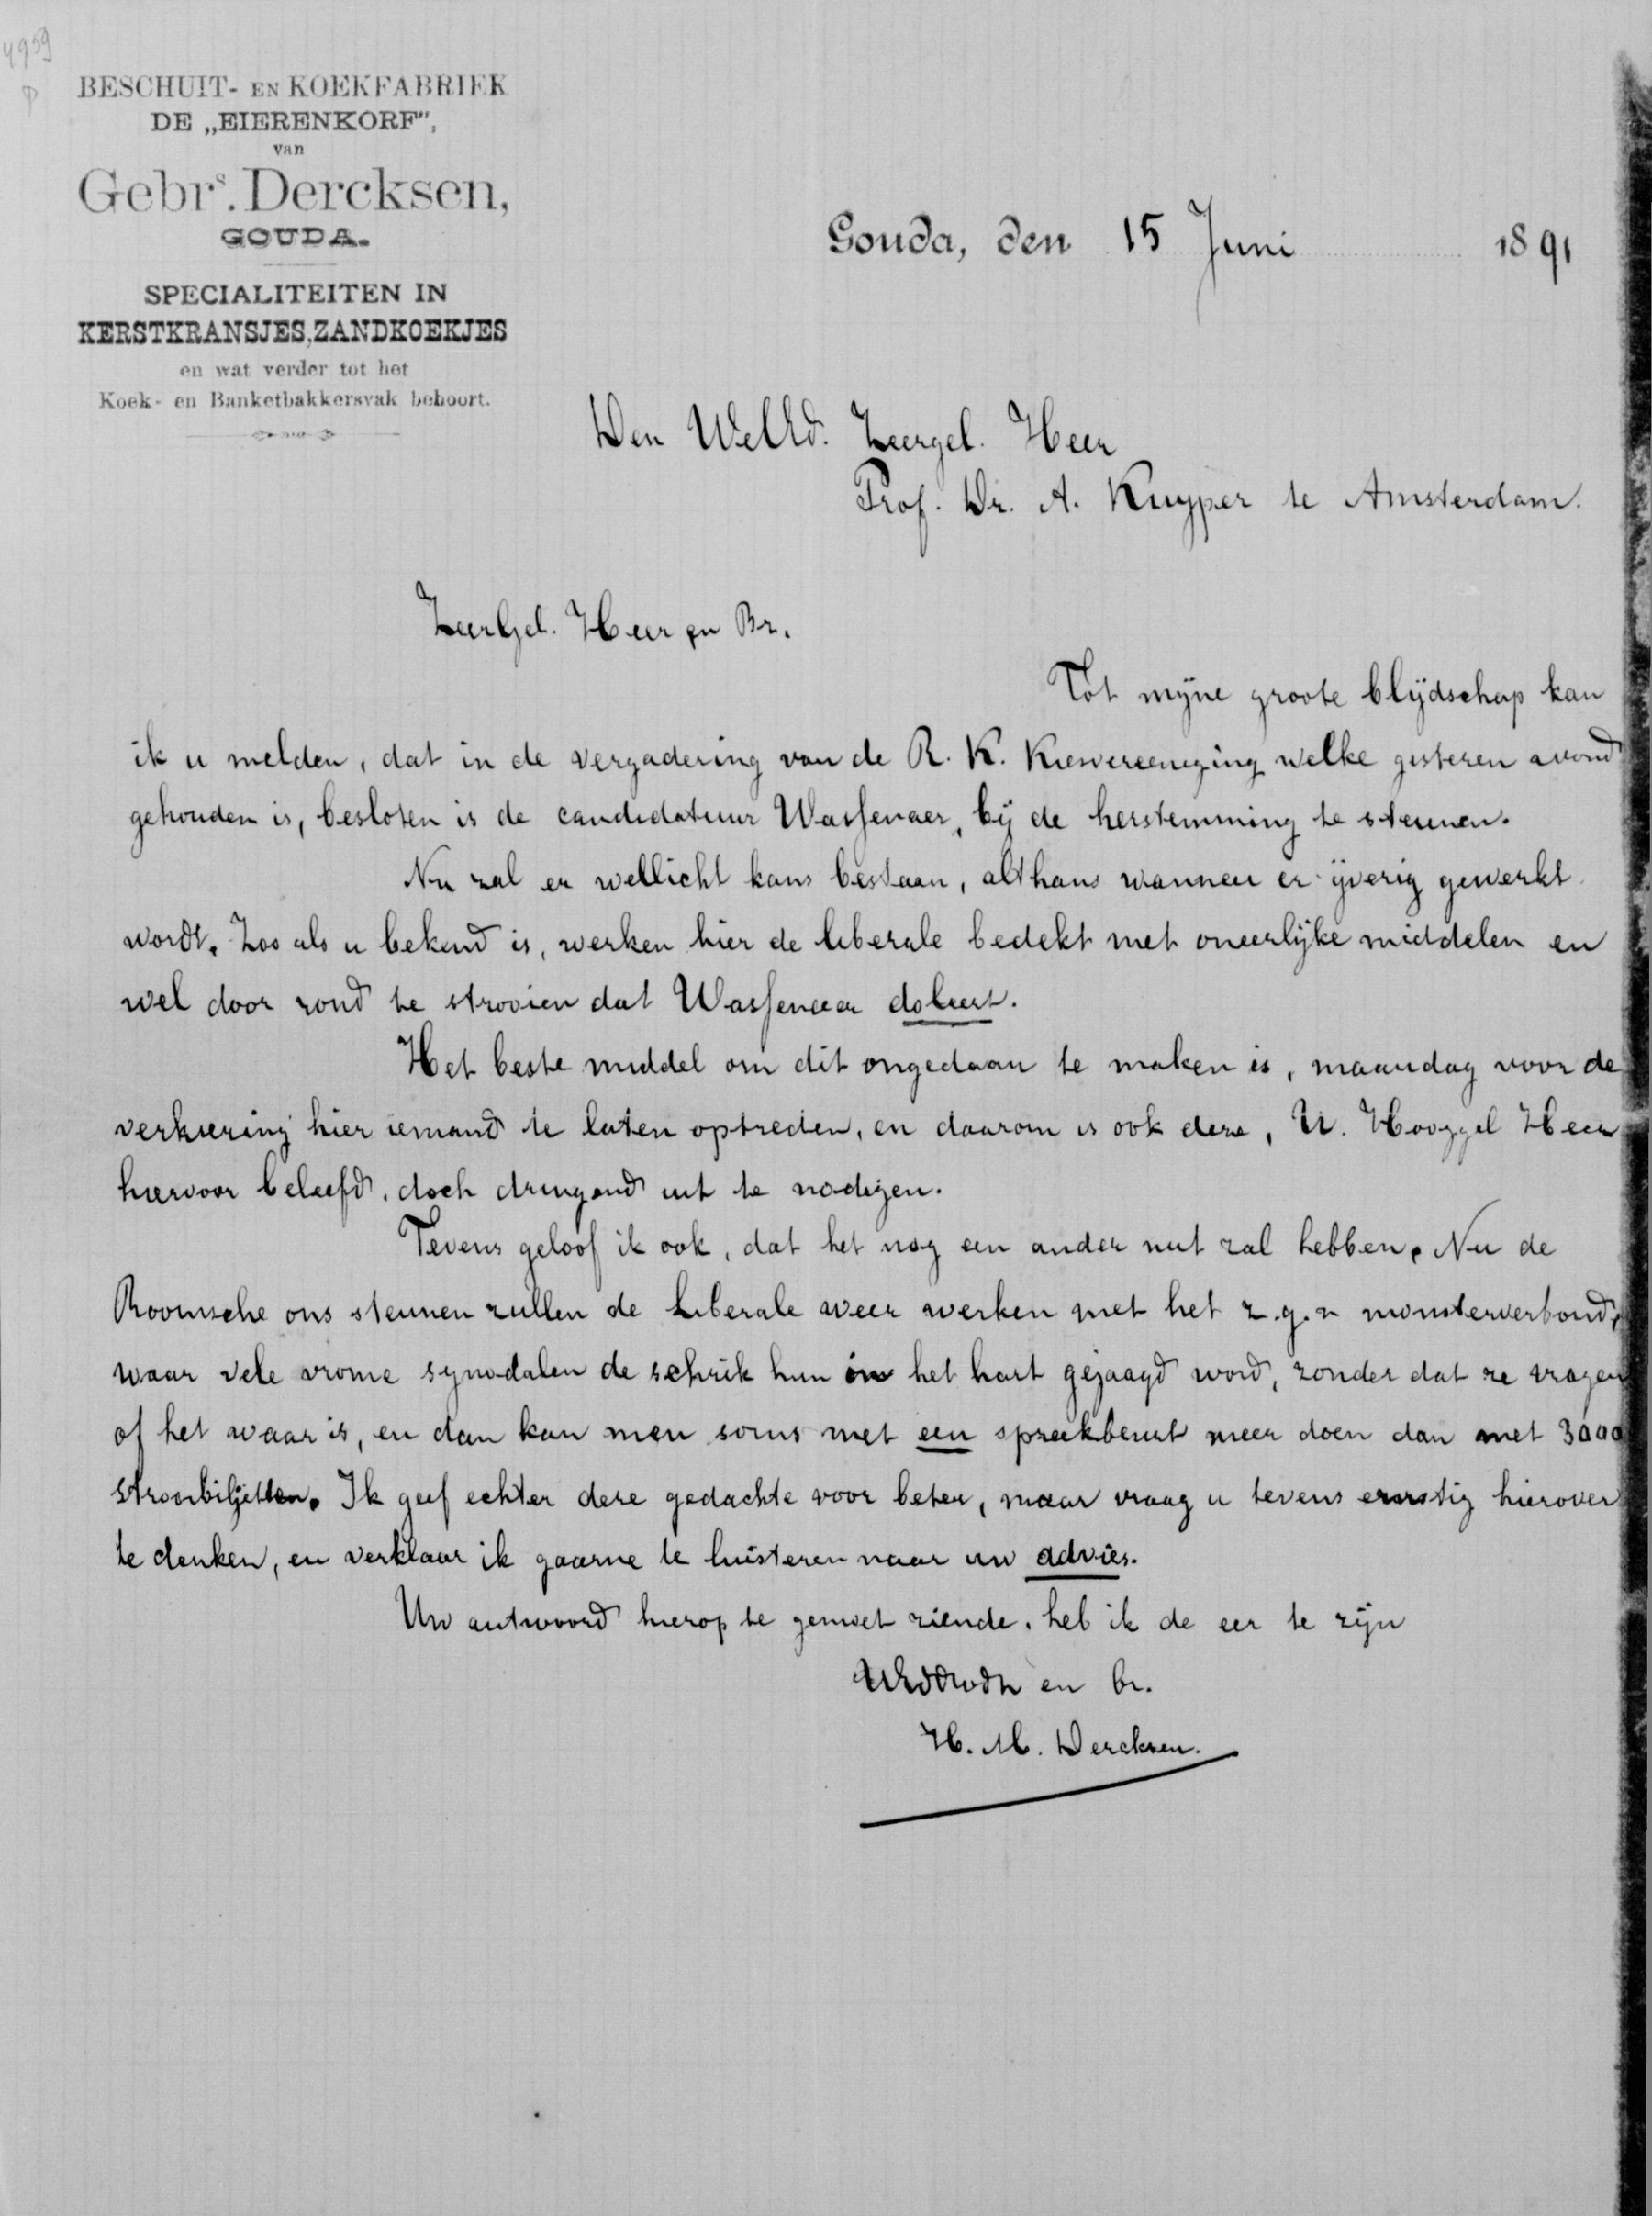 4959
BESCHUIT- EN KOEKFABRIEK
DE „EIERENKORF",
van
Gebrs. Dercksen,
GOUDA.
SPECIALITEITEN IN
KERSTKRANSJES, ZANDKOEKJES
en wat verder tot het
Koek- en Banketbakkersvak behoort.
Gouda, den 15 Juni 1891
Den WelEd. Zeergel. Heer
Prof. Dr. A. Kuyper te Amsterdam.
ZeerGel. Heer en Br.
Tot mijne groote blijdschap kan
ik u melden, dat in de vergadering van de R. K. Kiesvereeniging welke gisteren avond
gehouden is, besloten is de candidatuur Wassenaer, bij de herstemming te steunen.
Nu zal er wellicht kans bestaan, althans wanneer er ijverig gewerkt
wordt. Zoo als u bekend is, werken hier de liberale bedekt met oneerlijke middelen en
wel door rond te strooien dat Wassenaer doleert.
Het beste middel om dit ongedaan te maken is, maandag voor de
verkiezing hier iemand te laten optreden, en daarom is ook deze, U. Hooggel Heer
hiervoor beleefd, doch dringend uit te nodigen.
Tevens geloof ik ook, dat het nog een ander nut zal hebben. Nu de
Roomsche ons steunen zullen de Liberale weer werken met het z.g.n monsterverbond,
waar vele vrome synodalen de schrik hun in het hart gejaagd word, zonder dat ze vragen
of het waar is, en dan kan men soms met een spreekbeurt meer doen dan met 3000
strooibiljetten. Ik geef echter deze gedachte voor beter, maar vraag u tevens ernstig hierover
te denken, en verklaar ik gaarne te luisteren naar uw advies.
Uw antwoord hierop te gemoet ziende, heb ik de eer te zijn
en br.
H. M. Dercksen.